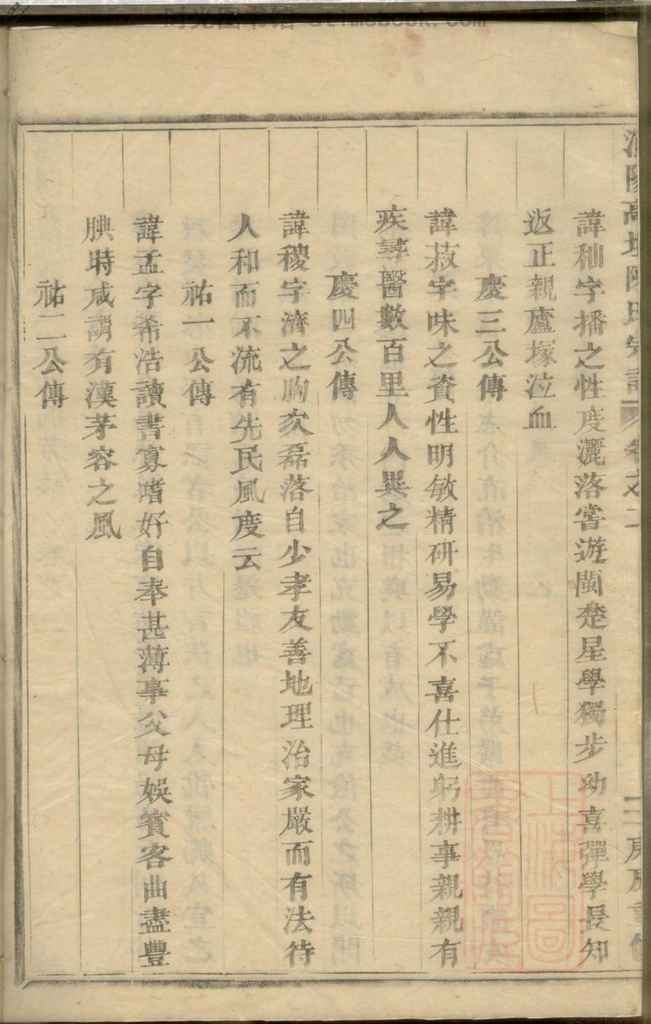 諱秈字播之性度灑落嘗遊閩楚星學獨步幼喜彈學長知
返正親廬塚泣血
慶三公傳
諱菽字味之資性明敏精研易學不喜仕進躬耕事親親有
疾尋醫數百里人人異之
慶四公傳
諱稷字濟之胸次磊落自少孝友善地理治家嚴而有法待
人和而不流有先民風度云
祐一公傳
諱孟字希浩讀書寡嗜好自奉甚薄事父母娛賓客曲盡豐
腆時咸謂有漢茅容之風
祐二公傳